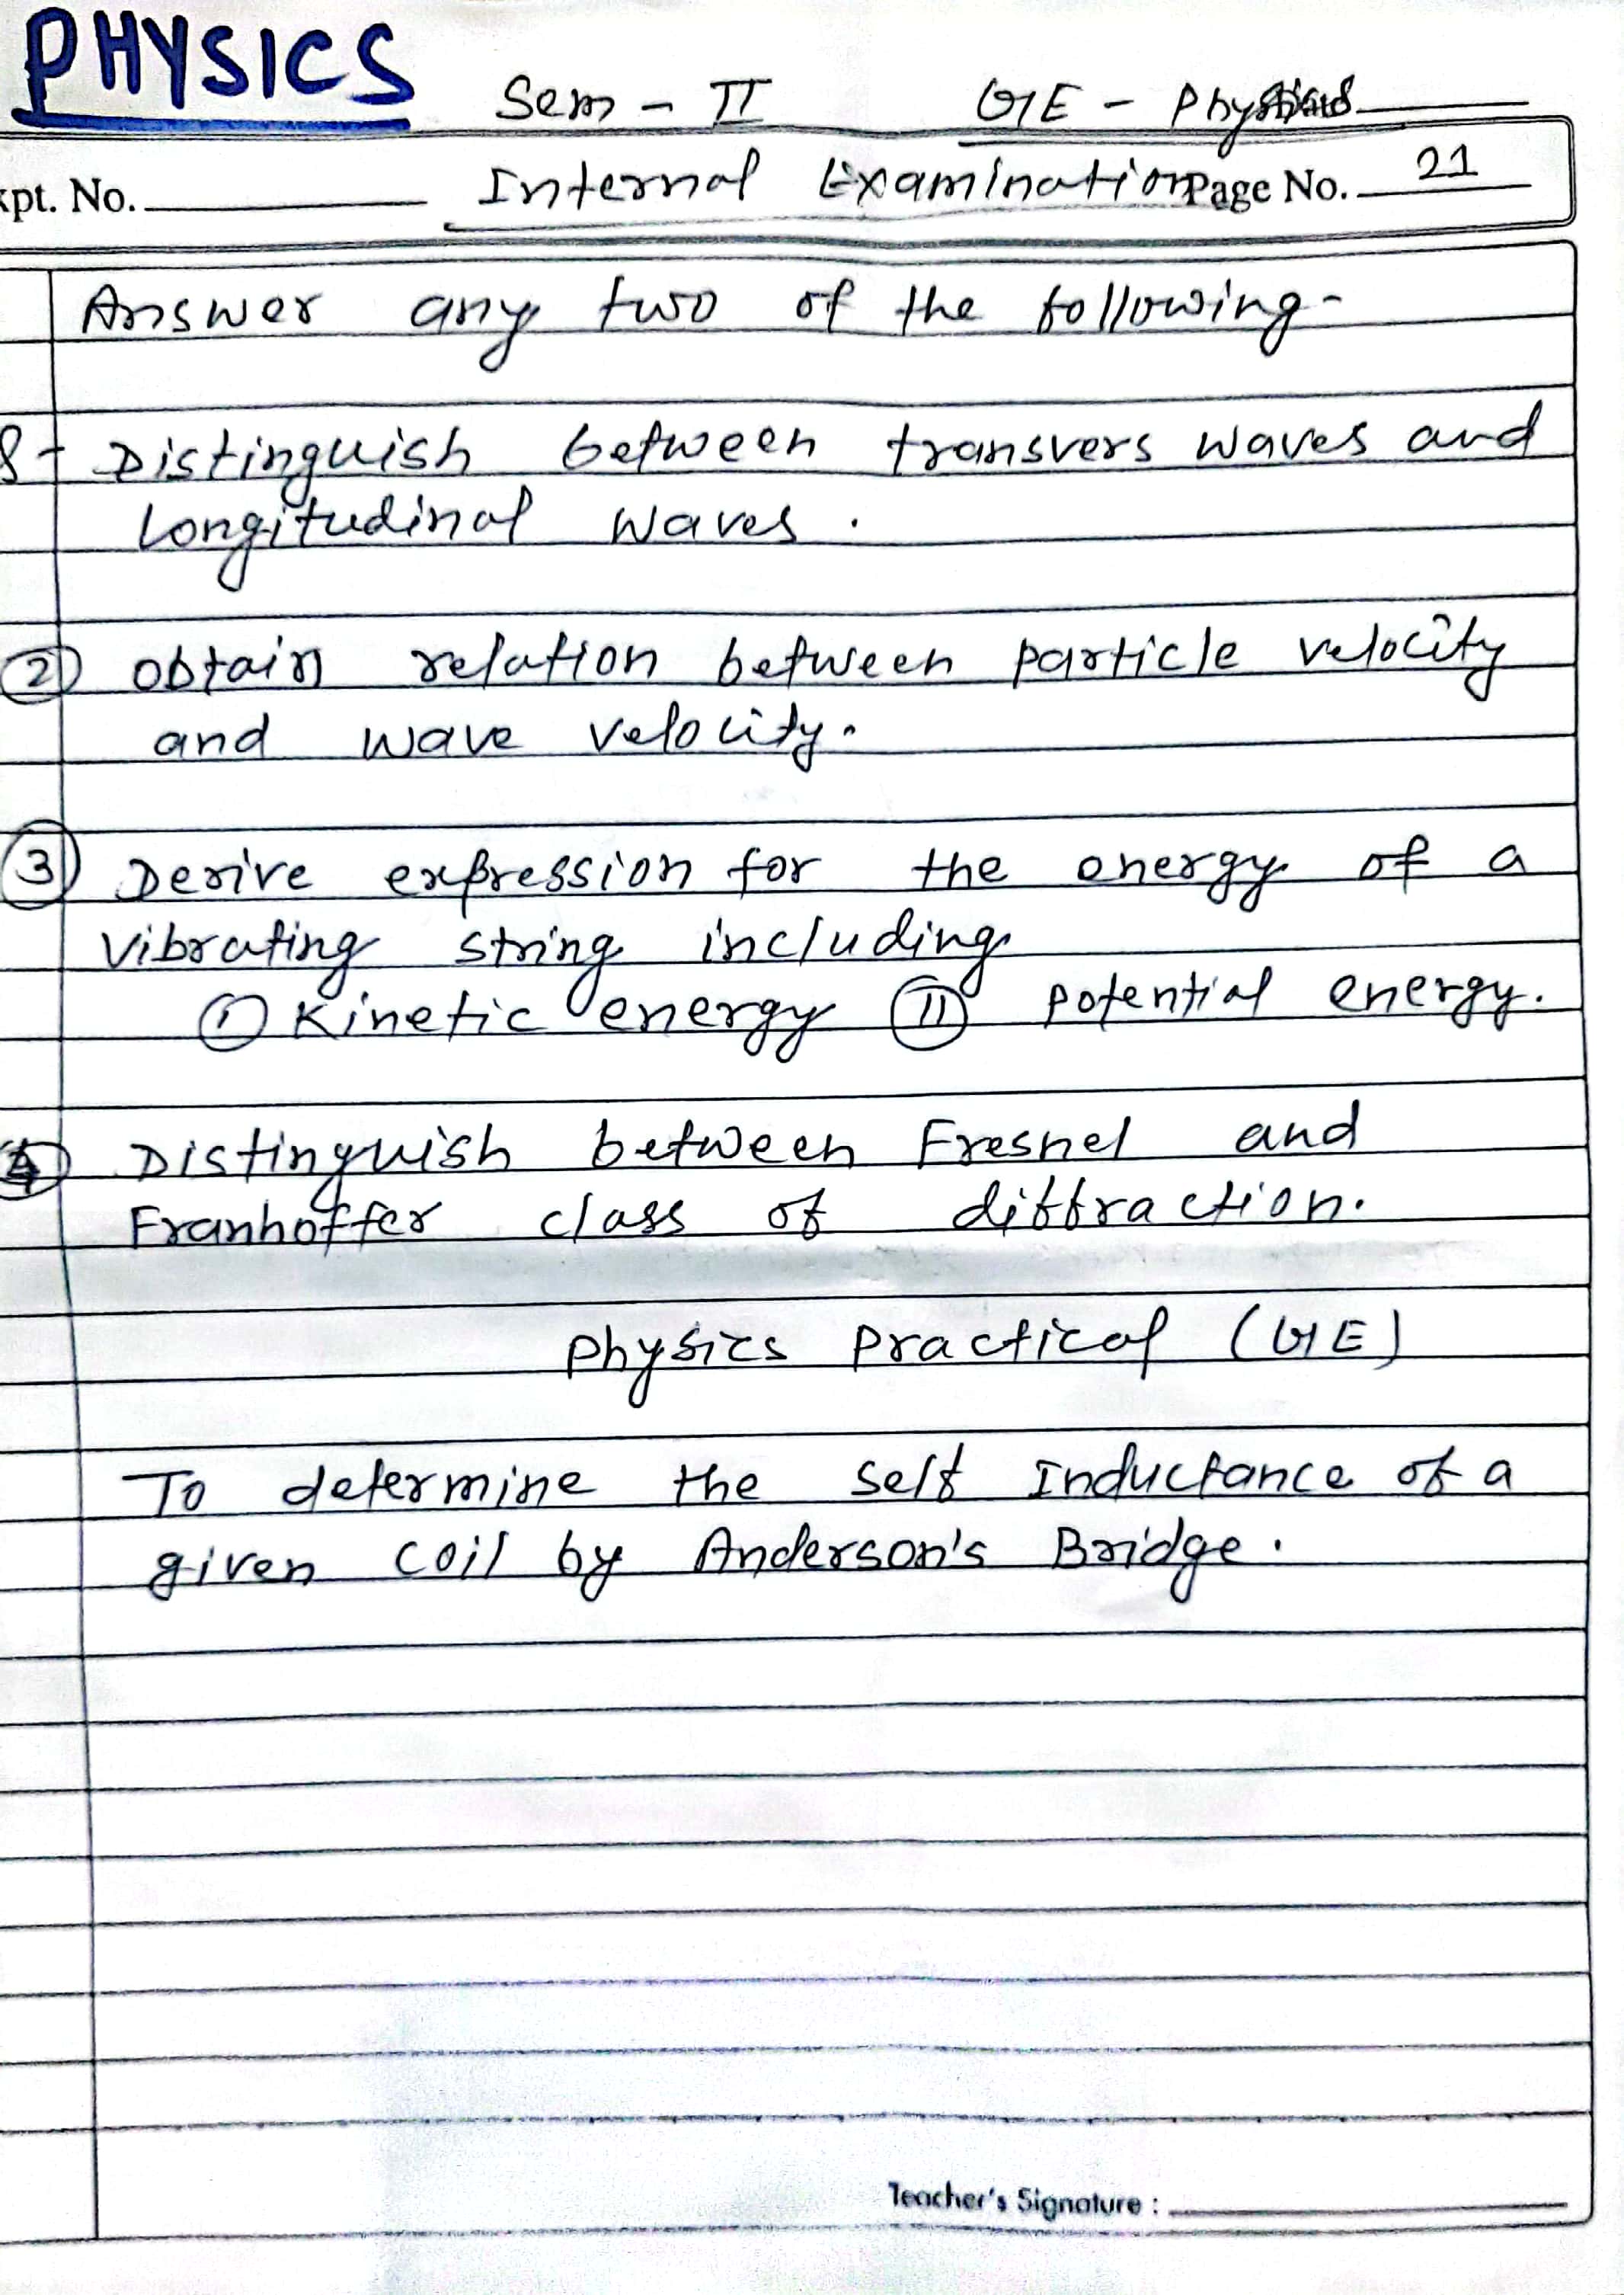 PHYSICS
Sem - II GE - Physics
xpt. No. Internal Examination Page No. 21
Answer any two of the following-
Distinguish between transvers waves and
Longitudinal waves.
② Obtain relation between particle velocity
and wave velocity.
③ Derive expression for the energy of a
vibrating string including
① Kinetic energy ⑪ potential energy.
④ Distinguish between Fresnel and
Franhoffer class of diffraction.
Physics Practical (GE)
To determine the self Inductance of a
given coil by Anderson's Bridge.
Teacher's Signature :